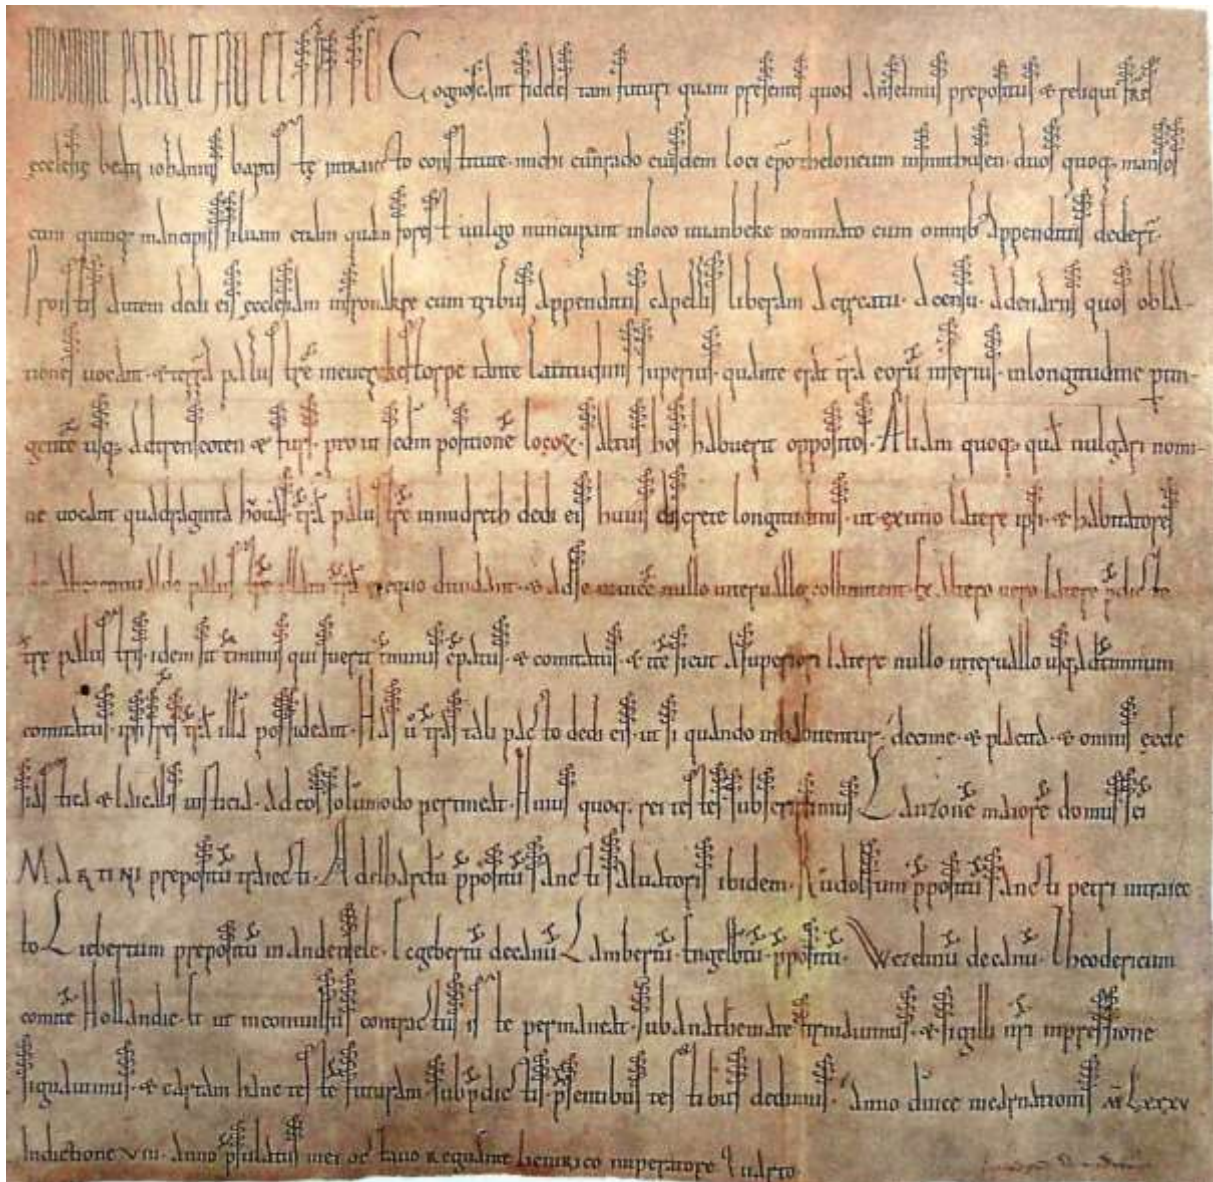 IN NOMINE PATRIS ET FILII ET SPS SCI Cognoscant fideles tam futuri quam presentes quod Anselmus prepositus et reliqui frēs
ecclesię beati iohannis baptistę intraiecto constitute michi cunrado eiusdem loci epō theloneum inmuthusen duos quoq; mansos
cum quinq; mancipiis siluam etiam quam forest uulgo nuncupant inloco nominato cum omnib; appenditiis dedert.
Pro istis autem dedi eis ecclesiam cum tribus appenditiis capellis liberam a circatu. a censu. a denariis quos obla-
tiones uocant. et terrā palustrē tante latitudinis superius. quante erat trā eorū inferius. inlongitudine ptin-
gentē usq; ad et furs. pro ut sedm positionē locorū. saltus hos habuerit oppositos. Aliam quoq; quā uulgari nomi-
ne uocant quadraginta hōuas. trā palustrē inmidreth dedi eis huius discrete longitudinis. ut ex uno latere ipsi. et habitatores
de palustrē illam trā ex equo diuidant. et adse inuicē nullo interuallo collimitent. Ex altero uero latere pdictę
trę palustris. idem sit tminus qui fuerit tminus epatus. et comitatus. et ite sicut asuperiori latere nullo interuallo usq; adtminum
comitatus. ipsi frēs trā illā possideant. Has ū trās tali pacto dedi eis. ut si quando inhabitentur. decime. et placita. et omnis eccle
siastica et laicalis iusticia. ad eos solūmodo pertineat. Huius quoq; rei testes subscripsimus Lanzonē maiorē domus sci
MARTINI prepositū traiecti. Adelhardū ppositū sancti saluatoris ibidem. Rudolfum ppositū sancti petri intraiec
to Liebertum prepositū inandensele. decanū Lambertū. Engelbtū. ppositū. Wezelinū decanū. Theodericum
comitē Hollandie. Et ut inconuulsus contractus iste permaneat. subanathemate firmauimus. et sigilli nri inpressione
signauimus. et cartam hanc testē futuram. subpdictis. psentibus testibus dedimus. Anno dnice incarnationis M LXXXV
Indictione VIII. Anno psulatus mei octauo Regnante heinrico inperatore Quarto.